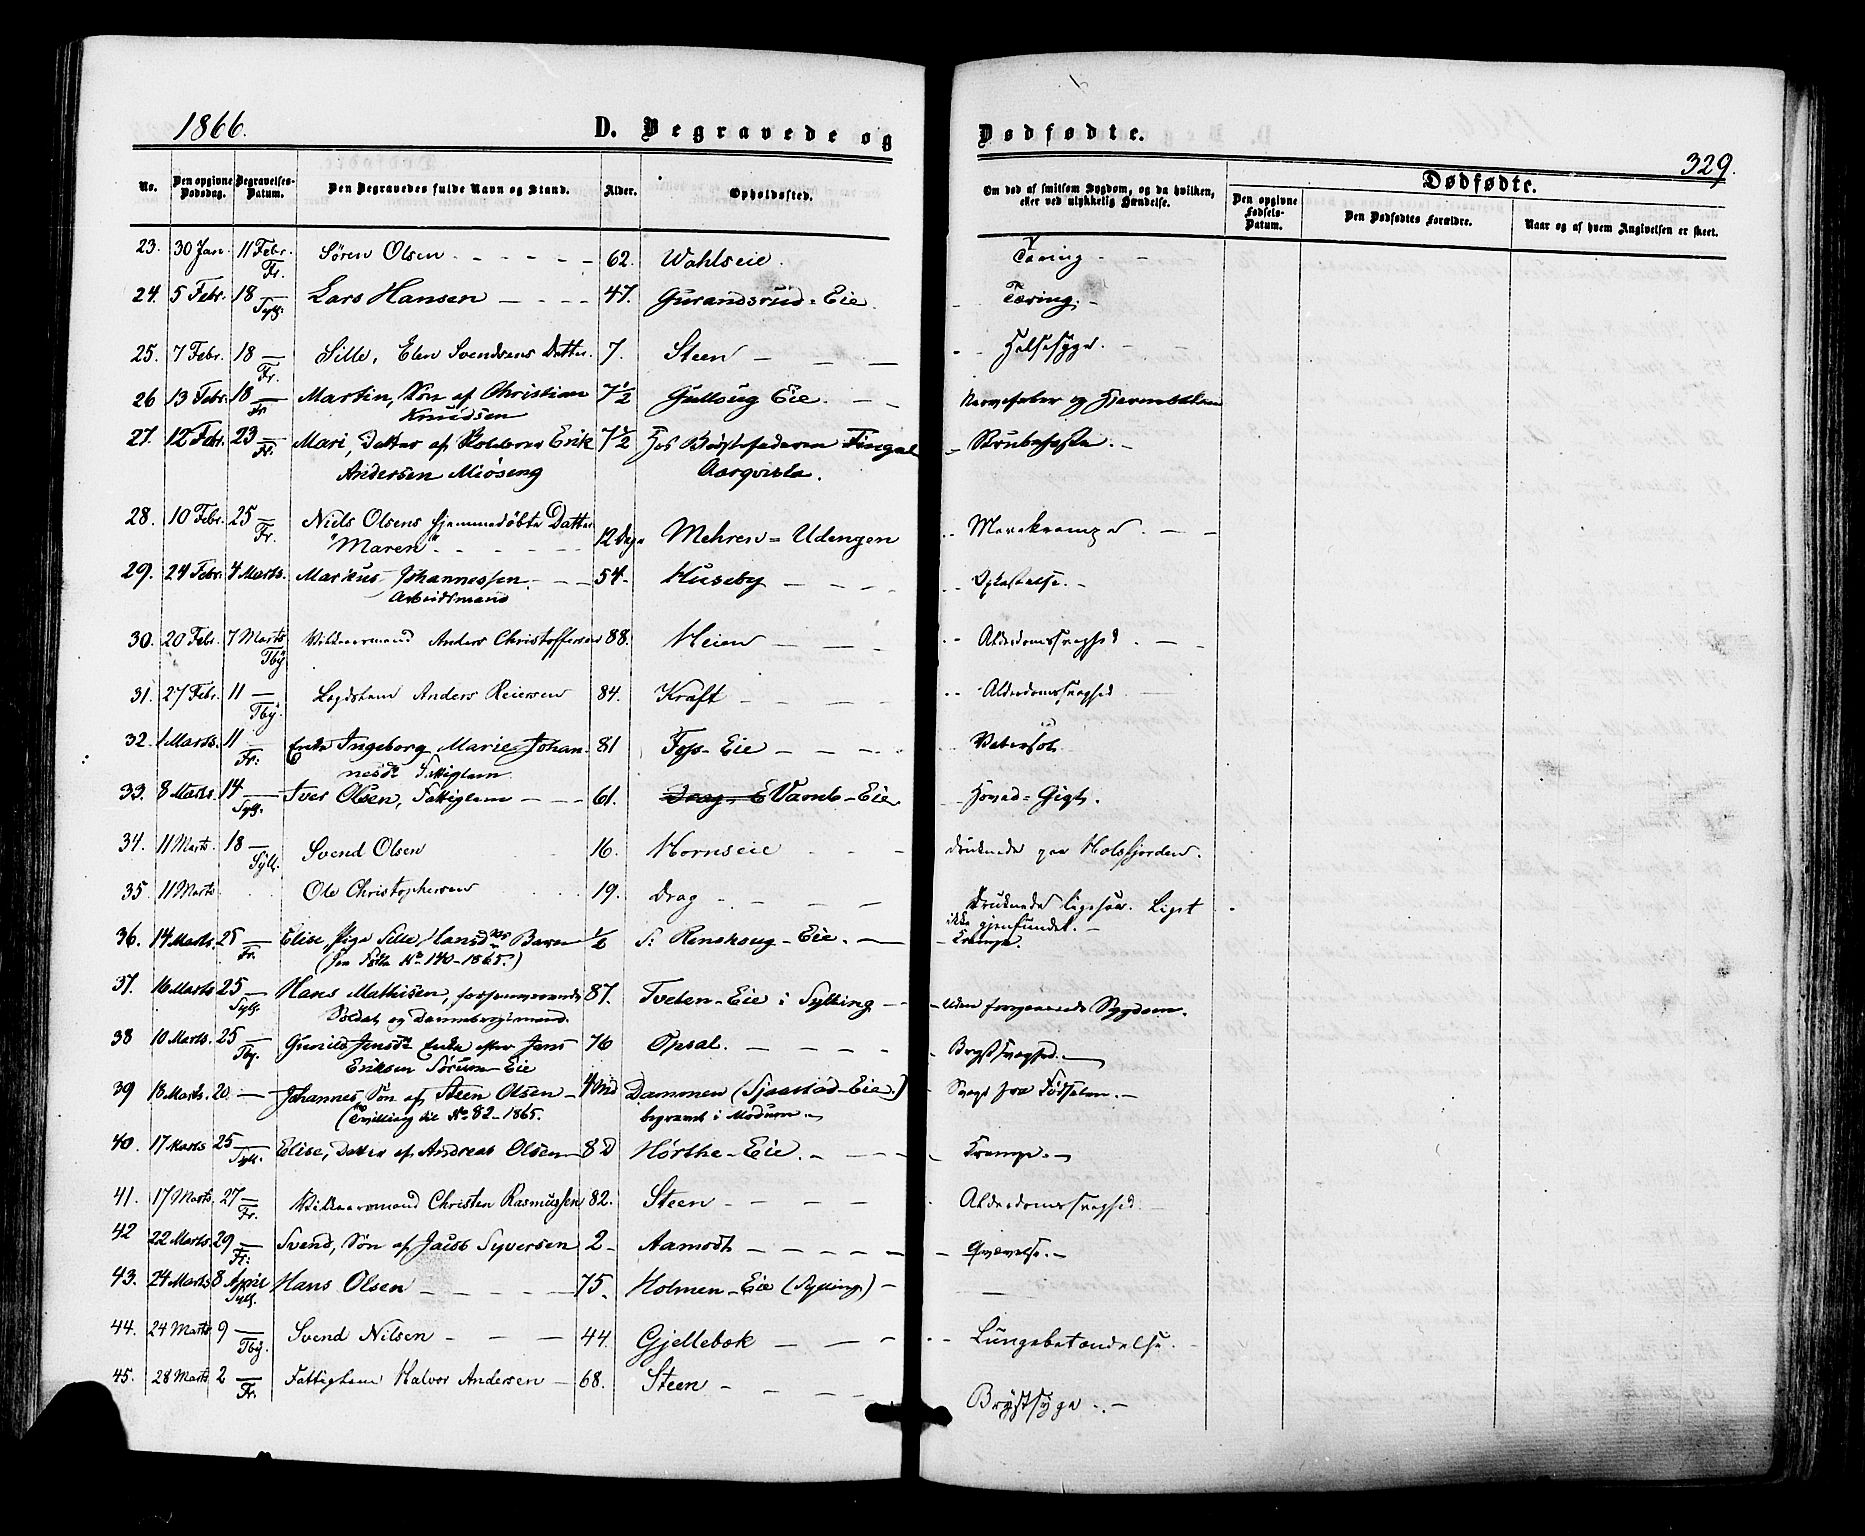 1866.
D. Begravede og Dødfødte.
329.
No. Den opgivne Dødsdag. Begravelses-Datum. Den Begravedes fulde Navn og Stand. Alder. Opholdssted. Om død af smitsom Sygdom, og da hvilken, eller ved ulykkelig Hændelse.
Dødfødte.
Den opgivne Fødsels-Datum. Den Dødfødtes Forældre. Naar og af hvem Angivelsen er skeet.
23. 30 Jan. 11 Febr. Fr. Sören Olsen 62. Wahlseie. Tæring
24. 5 Febr. 18 — Syll. Lars Hansen 47. Gurandsrud-Eie. Tæring.
25. 7 Febr. 18 — Fr. Sille, Elen Svendsens Datter. 7. Steen Halssyge.
26 13 Febr. 18 — Fr. Martin, Sön af Christian 7½ Gullaug Eie. Nervefeber og
Knudsen
27. 12 Febr. 23 — Fr. Mari, Datter af Erik 7½ Hos Bedstefaderen Fingal Strubehoste.
Andersen Miöseng Aarqvisla.
28. 10 Febr. 25 — Fr. Niels Olsens hjemmedöbte Datter
"Maren" 12 Dage Mehren-Udengen Mavekrampe
29. 24 Febr. 4 Marts. Markus Johannessen 54. Huseby
Arbeidsmand
30. 20 Febr. 7 Marts Tby Vilkaarsmand Anders Christoffersen 88. Heien Alderdomssvaghed
31. 27 Febr. 11 — Tby. Lægdslem Anders Reiersen 84. Kraft Alderdomssvaghed
32. 1 Marts. 11 — Fr. Enke Ingeborg Marie Johan 81 Foss-Eie Vatersot
nesdt. Fattiglem
33. 8 Marts. 14 — Syll. Iver Olsen, Fattiglem 61. Vamb-Eie Hoved-Gigt.
34. 11 Marts. 18 — Syll. Svend Olsen 16. Hornseie druknede paa Holsfjorden.
35 11 Marts Ole Christophersen 19. Drag druknede ligesaa. Liget
ikke gjenfundet.
36. 14 Marts. 25 — Fr. Elise Pige Sille Hansdtrs Barn ½ S: Renskaug-Eie. Krampe.
(See Födte No 140-1865.)
37. 16 Marts 25 — Syll. Hans Mathisen, forhenværende 87. Tveten-Eie i Sylling uden foregaaende Sygdom.
Soldat og Dannebrogsmand.
38 10 Marts. 25 — Tby. Gunild Jensdt. Enke efter Jens 76 Opsal. Brystsvaghed.
Eriksen Sörum-Eie
39 18 Marts. 20. — Johannes, Sön af Steen Olsen 4 Md Dammen (Sjaastad-Eie.) Svag fra Födselen.
(Tvilling til No 82-1865. begravet i Modum
40. 17 Marts 25 — Syll. Elise, Datter af Andreas Olsen 8 D Hörthe-Eie. Krampe.
41. 17 Marts. 27 — Fr. Vilkaarsmand Christen Rasmussen 82. Steen Alderdomssvaghed.
42 22 Marts. 29 — Fr. Svend, Sön af Jacob Syversen 2 Aamodt Qvælvelse.
43. 24 Marts 8 April Syll. Hans Olsen 75. Holmen-Eie (Sylling)
44. 24 Marts 9 — Tby. Svend Nilsen 44. Gjellebæk Lungebetændelse.
45. 28 Marts 2 — Fr. Fattiglem Halvor Andersen 68. Steen Brystsyge.